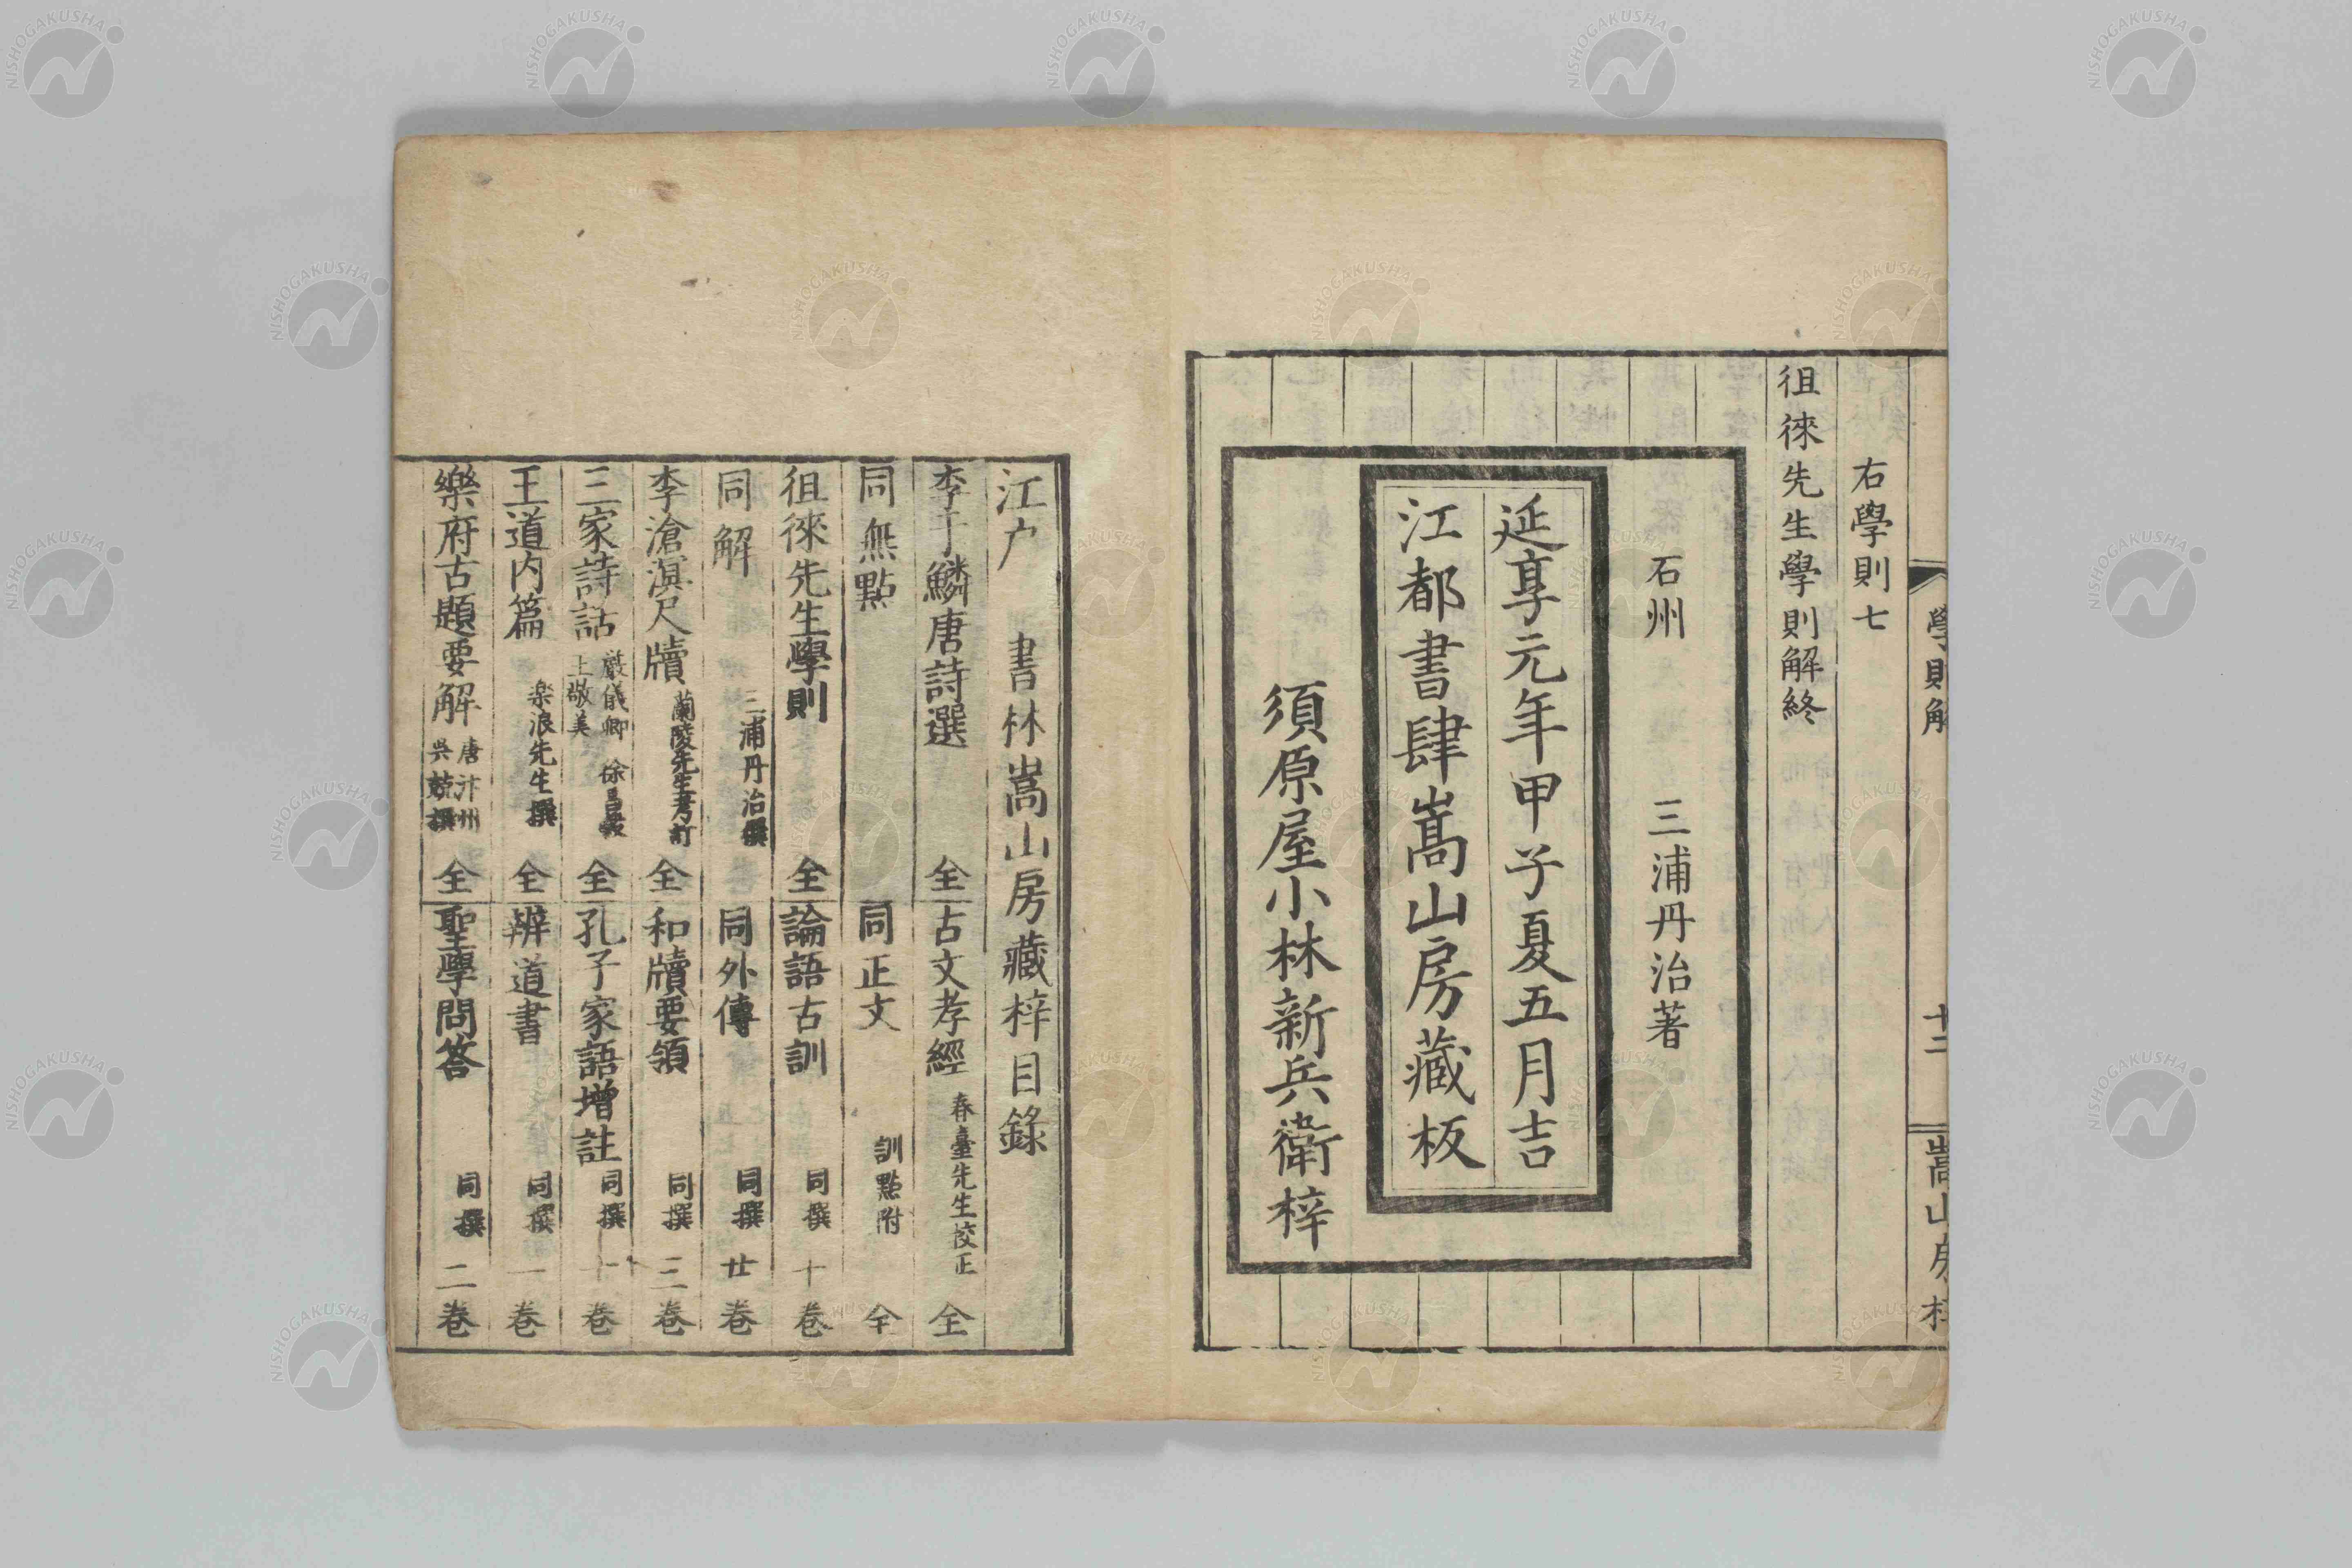 學則解
十二
嵩山房梓
右學則七
徂徠先生學則解終
石州 三浦丹治著
延享元年甲子夏五月吉
江都書肆嵩山房藏板
須原屋小林新兵衛梓
江戶 書林嵩山房藏梓目錄
李于鱗唐詩選 全
古文孝經 春臺先生挍正 全
同無點
同正文 訓點附 全
徂徠先生學則 全
論語古訓 同撰 十卷
同解 三浦丹治撰
同外傳 同撰 廿卷
李滄溟尺牘 蘭陵先生考訂 全
和牘要領 同撰 三卷
三家詩話 嚴儀卿 徐昌穀 王敬美 全
孔子家語增註 同撰 十卷
王道內篇 樂浪先生撰 全
辨道書 同撰 一卷
樂府古題要解 唐汴州吳兢撰 全
聖學問答 同撰 二卷
NISHOGAKUSHA